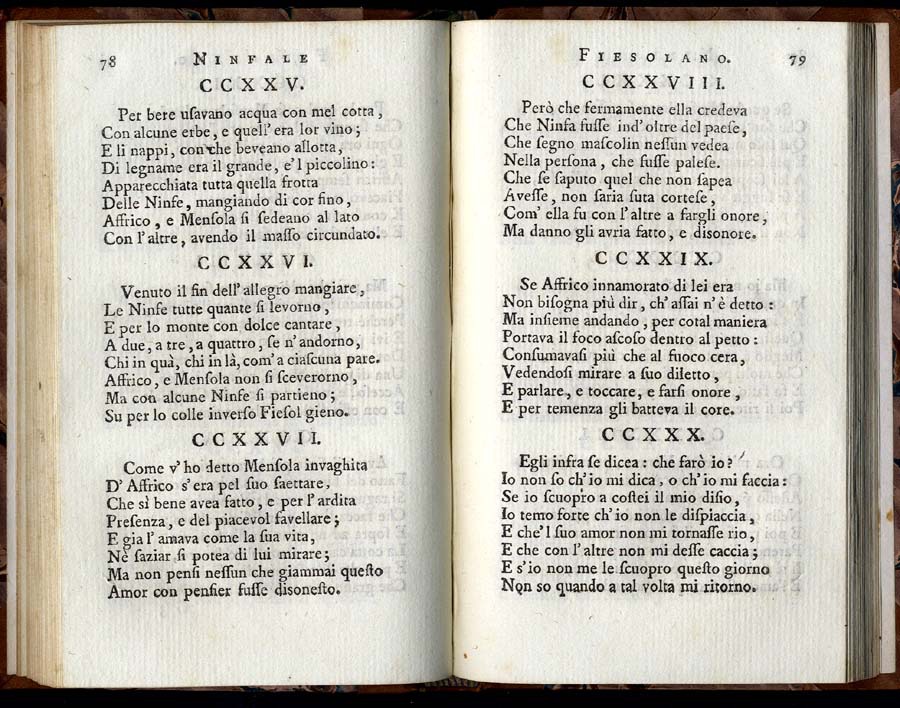 78 NINFALE
CCXXV.
Per bere uſavano acqua con mel cotta,
Con alcune erbe, e quell' era lor vino;
E li nappi, con che beveano allotta,
Di legname era il grande, e'l piccolino:
Apparecchiata tutta quella frotta
Delle Ninfe, mangiando di cor fino,
Affrico, e Menſola ſi ſedeano al lato
Con l'altre, avendo il maſſo circundato.
CCXXVI.
Venuto il fin dell' allegro mangiare,
Le Ninfe tutte quante ſi levorno,
E per lo monte con dolce cantare,
A due, a tre, a quattro, ſe n' andorno,
Chi in quà, chi in là, com' a ciaſcuna pare.
Affrico, e Menſola non ſi ſceverorno,
Ma con alcune Ninfe ſi partieno;
Su per lo colle inverſo Fieſol gieno.
CCXXVII.
Come v' ho detto Menſola invaghita
D' Affrico s' era pel ſuo ſaettare,
Che sì bene avea fatto, e per l' ardita
Preſenza, e del piacevol favellare;
E gia l' amava come la ſua vita,
Nè ſaziar ſi potea di lui mirare;
Ma non penſi neſſun che giammai queſto
Amor con penſier fuſſe diſoneſto.
FIESOLANO. 79
CCXXVIII.
Però che fermamente ella credeva
Che Ninfa fuſſe ind' oltre del paeſe,
Che ſegno maſcolin neſſun vedea
Nella perſona, che fuſſe paleſe.
Che ſe ſaputo quel che non ſapea
Aveſſe, non ſaria ſuta corteſe,
Com' ella fu con l' altre a fargli onore,
Ma danno gli avria fatto, e diſonore.
CCXXIX.
Se Affrico innamorato di lei era
Non biſogna più dir, ch' aſſai n' è detto:
Ma inſieme andando, per cotal maniera
Portava il foco aſcoſo dentro al petto:
Conſumavaſi più che al fuoco cera,
Vedendoſi mirare a ſuo diletto,
E parlare, e toccare, e farſi onore,
E per temenza gli batteva il core.
CCXXX.
Egli infra ſe dicea: che farò io?
Io non ſo ch' io mi dica, o ch' io mi faccia:
Se io ſcuopro a coſtei il mio diſio,
Io temo forte ch' io non le diſpiaccia,
E che'l ſuo amor non mi tornaſſe rio,
E che con l' altre non mi deſſe caccia;
E s' io non me le ſcuopro queſto giorno
Non so quando a tal volta mi ritorno.